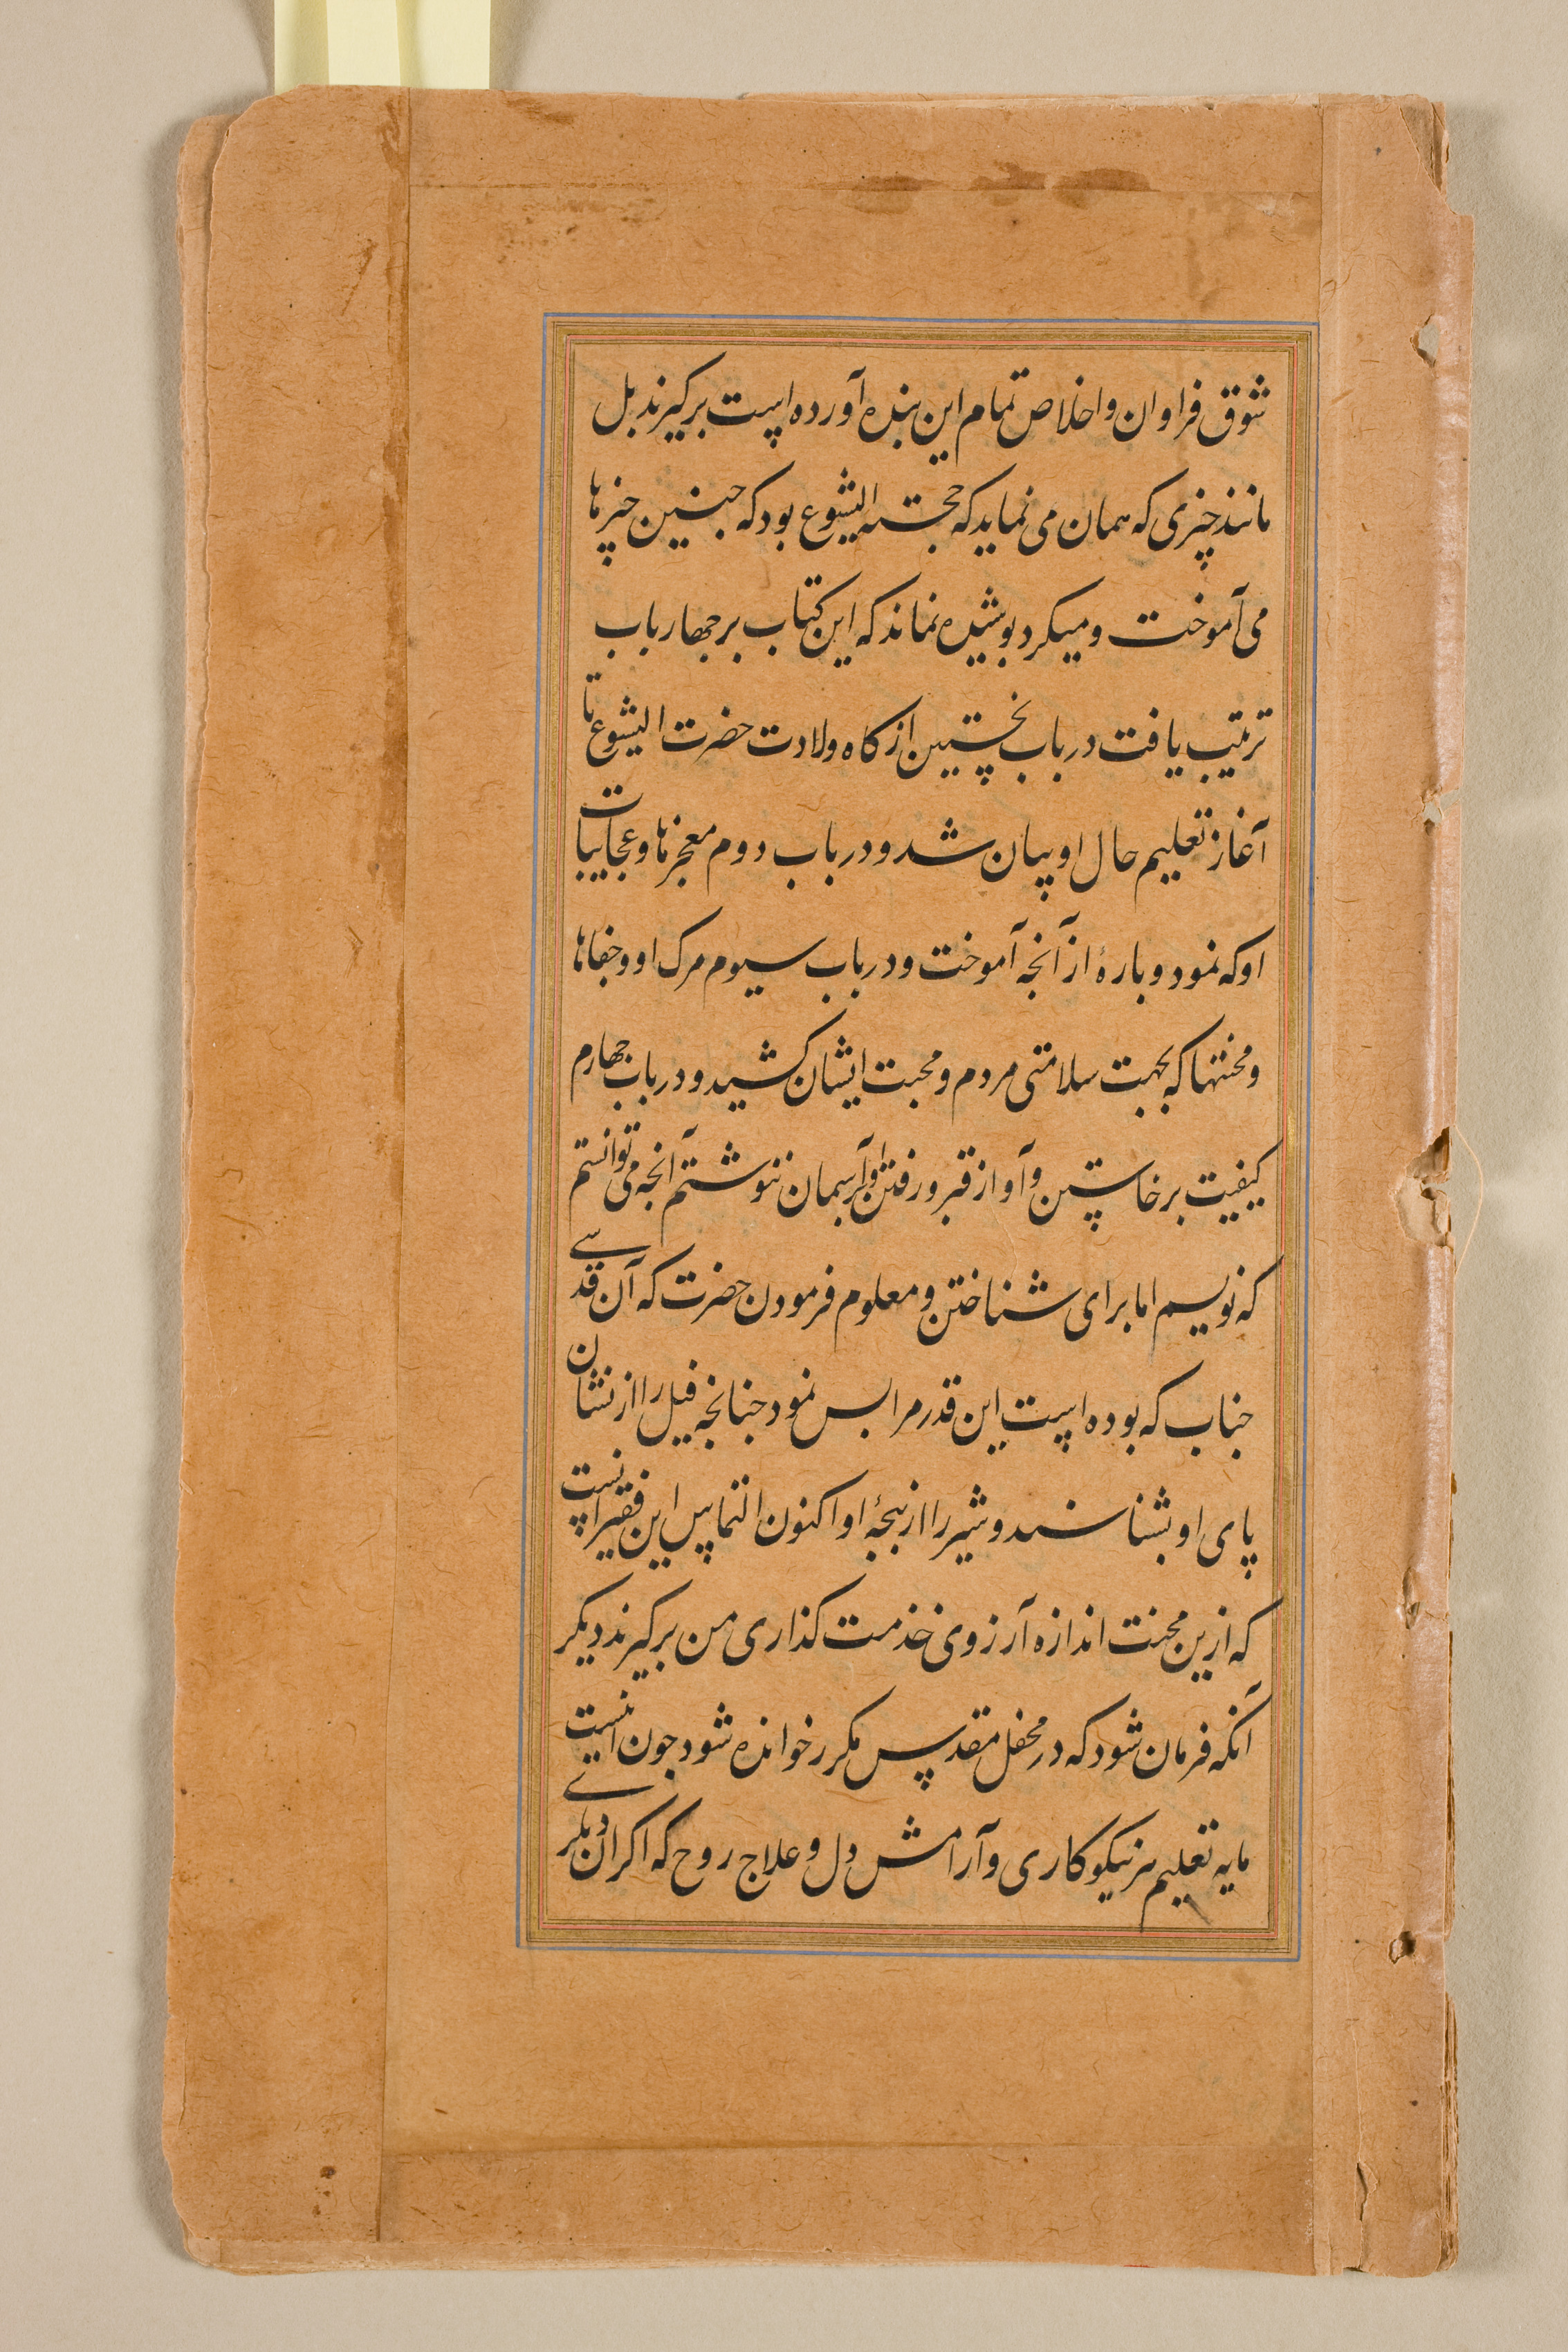 شوق فراوان و اخلاص تمام این بنده آورده است برگیرند بل
مانند چیزی که همان می نماید که حجته الیشوع بود که جنین چیزها
می آموخت و میکرد بوشیده نماند که این کتاب بر جهار باب
ترتیب یافت در باب نخستین از کاه ولادت حضرت الیشوع تا
آغاز تعلیم حال او بیان شد و در باب دوم معجزها و عجایبات
او که نمود و بارهٔ از آنجه آموخت و در باب سیوم مرک او و جفاها
و محنتها که بجهت سلامتی مردم و محبت ایشان کشید و در باب جهارم
کیفیت برخاستن و آواز قبر و رفتن او بر آسمان ننوشتم آنجه می توانستم
که نویسم اما برای شناختن و معلوم فرمودن حضرت که آن قدسی
جناب که بوده است این قدر مرا بس نمود جنانجه فیل را از نشان
پای او بشناسند و شیر را از بنجهٔ او اکنون التماس این فقیر اینست
که ازین محنت اندازه آرزوی خذمت کذاری من برگیرند دیکر
آنکه فرمان شود که در محفل مقدس مکرر خوانده شود جون اینست
مایه تعلیم هر نیکوکاری و آرامش دل و علاج روح که اکر از دیکری